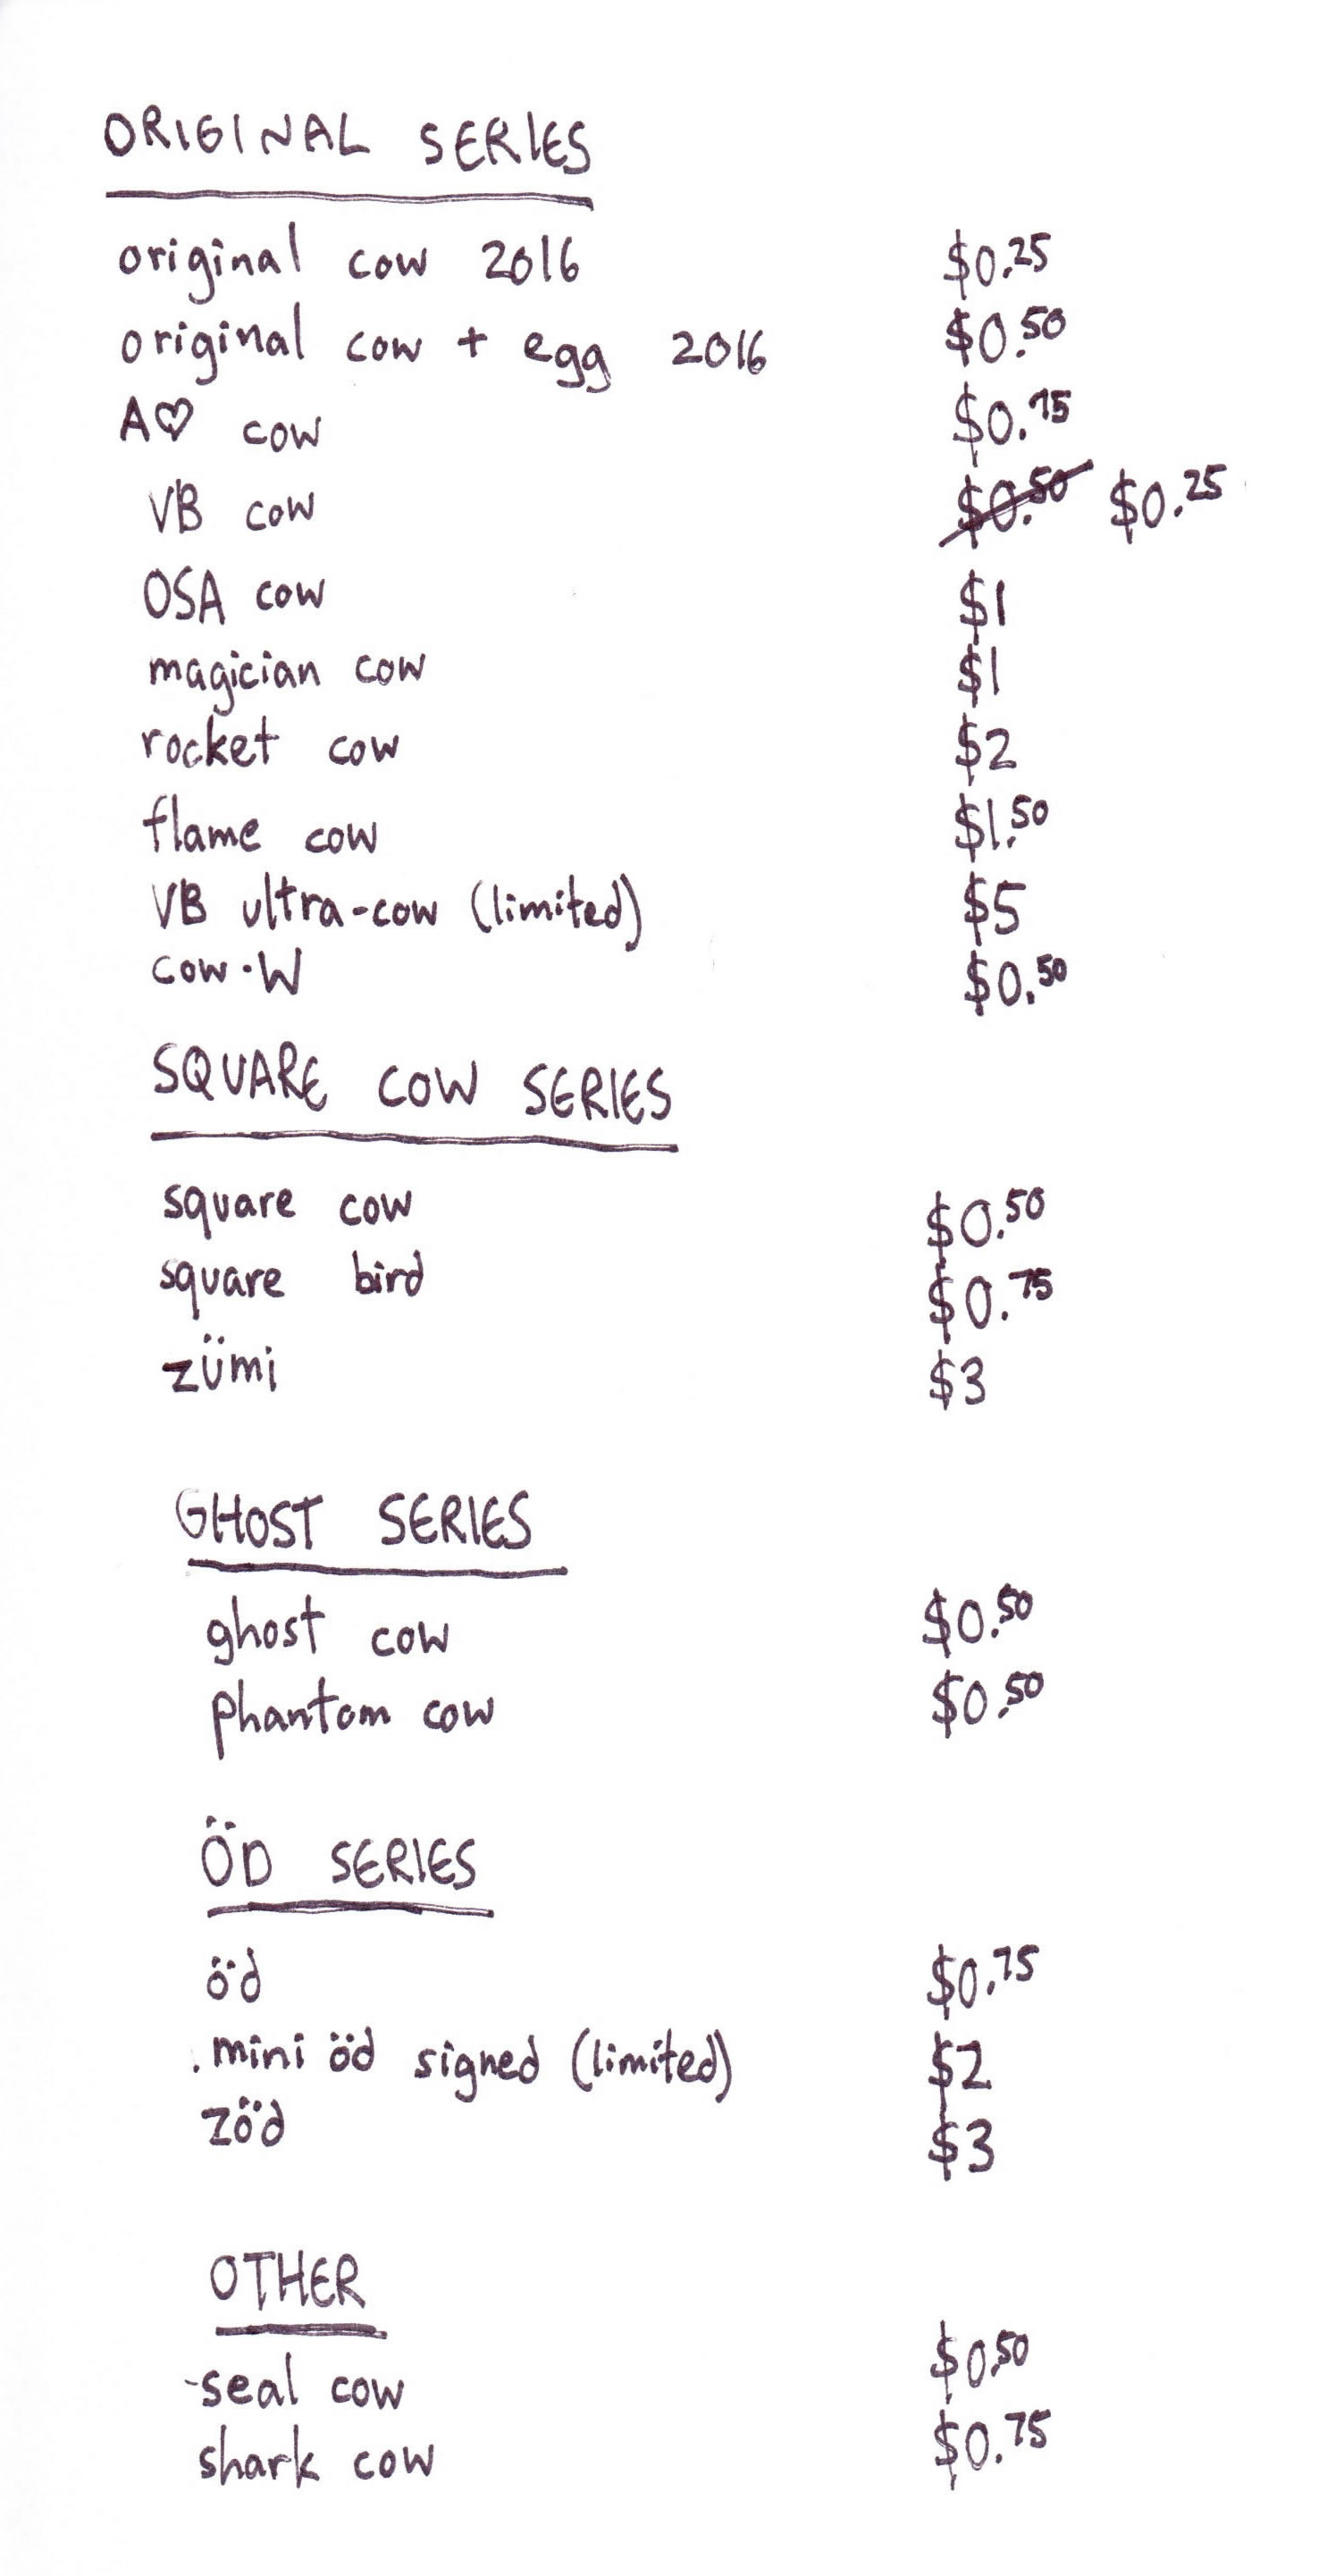 ORIGINAL SERIES
original cow 2016 $0.25
original cow + egg 2016 $0.50
A♡ cow $0.75
VB cow $0.50 $0.25
OSA cow $1
magician cow $1
rocket cow $2
flame cow $1.50
VB ultra-cow (limited) $5
cow·W $0.50
SQUARE COW SERIES
square cow $0.50
square bird $0.75
zümi $3
GHOST SERIES
ghost cow $0.50
phantom cow $0.50
ÖD SERIES
öd $0.75
mini öd signed (limited) $2
zöd $3
OTHER
seal cow $0.50
shark cow $0.75